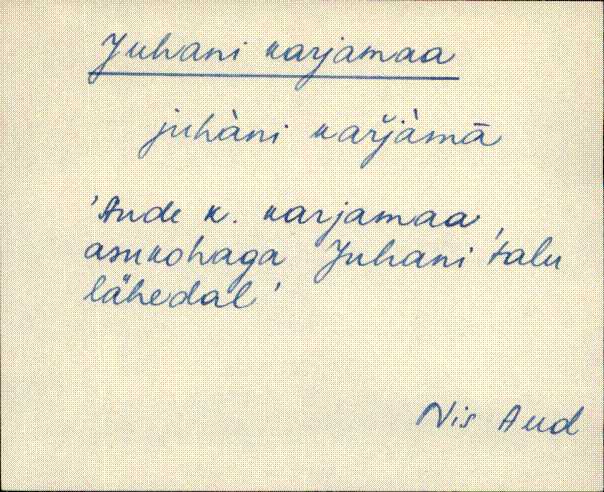 Juhani karjamaa
juhàni kaŕjàmā
'Aude k. karjamaa,
asukohaga Juhani talu
lähedal'
Nis Aud